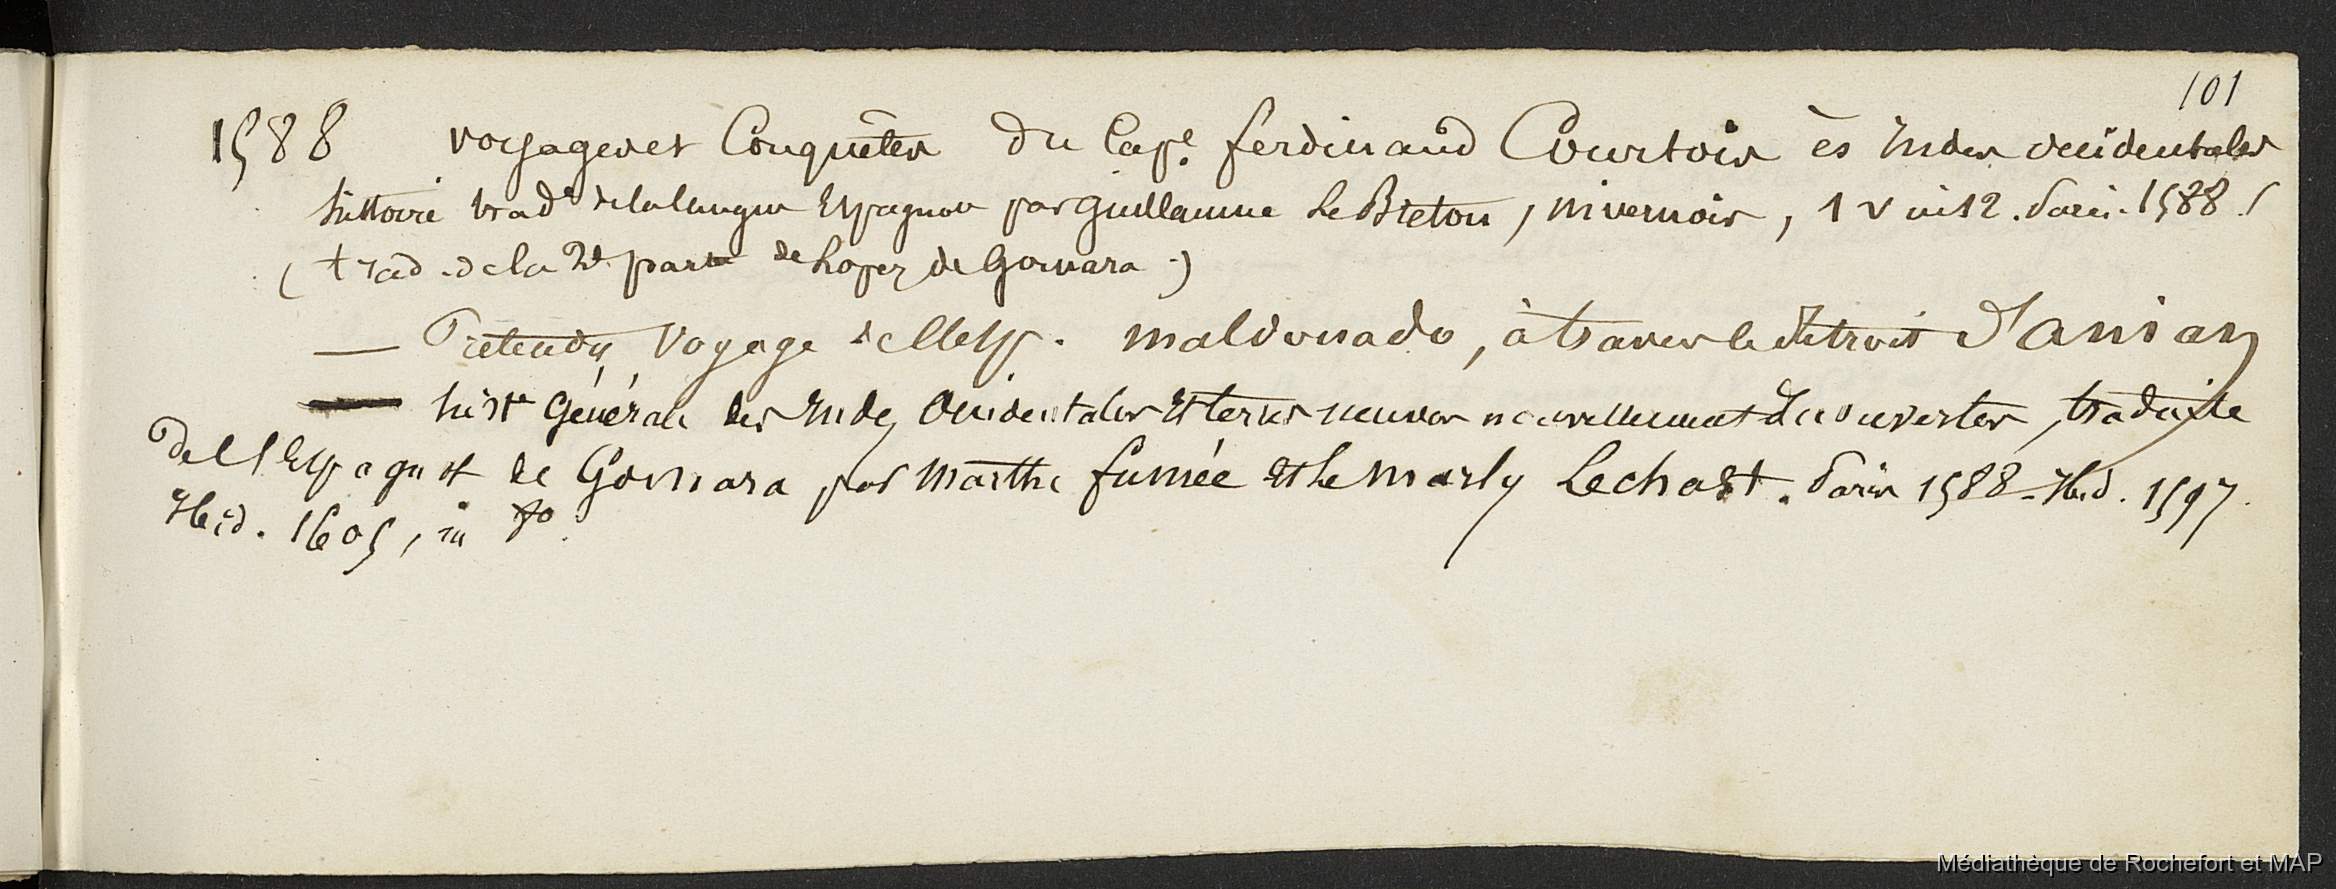 101
1588 Voyages et Conquêtes du Cape. ferdinand Courtois ès Indes occidentales
histoire trade de la langue Espagnole par Guillaume Le Breton, nivernois, 1 v in 12. Paris. 1588. (
(trad. de la 2de partie de Lopez de Gomara.)
— Pretendu Voyage de Maldonado, à travers le détroit d'anian
— histe Générale des Indes Occidentales et terres neuves nouvellement découvertes, traduite
de l'Espagnol de Gomara par Marthe fumée Marly Lechast. Paris 1588 - Ibid. 1597.
Ibid. 1605, in 8o.
Médiathèque de Rochefort et MAP